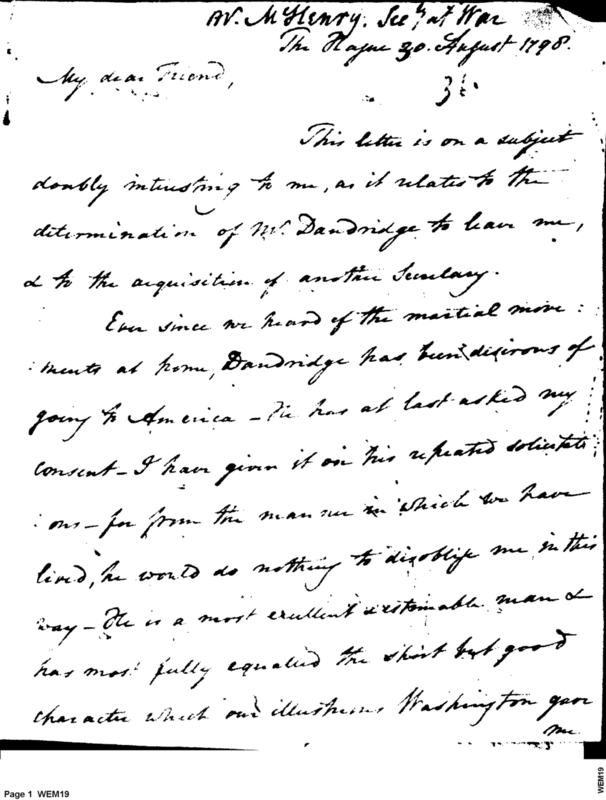 Mr. McHenry. Secy at War
The Hague 30. August 1798.
My dear Friend,
This letter is on a subject
doubly interesting to me, as it relates to the
determination of Mr. Dandridge to leave me,
& to the acquisition of another Secretary.
Ever since we heard of the martial move :
: ments at home, Dandridge has been desirous of
going to America – He has at last asked my
consent – I have given it on his repeated solicitati :
: ons – for from the manner in which we have
lived, he would do nothing to disoblige me in this
way – He is a most excellent & estimable man &
has most fully equalled the short but good
character which our illustrious Washington gave
me
Page 1 WEM19
WEM19